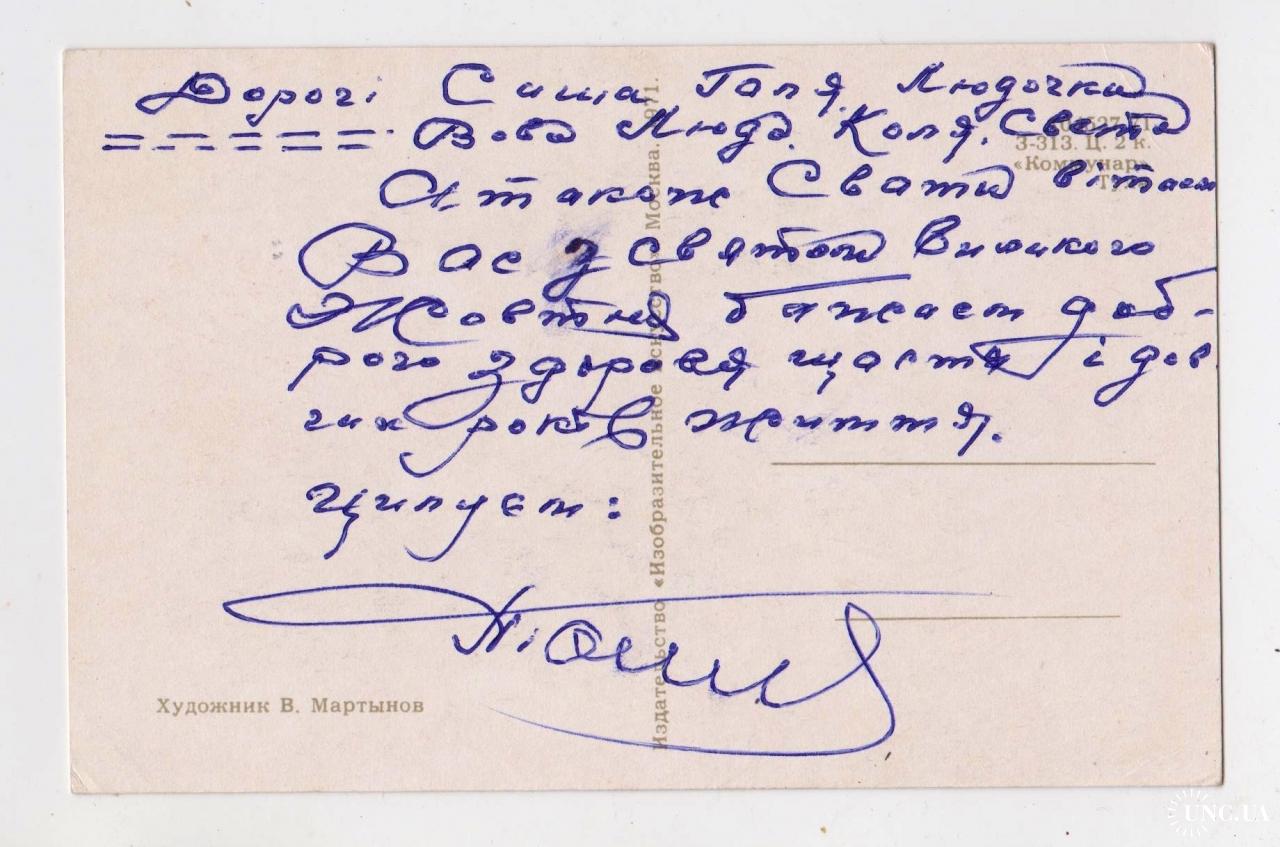 Дорогі Саша Галя, Людочка
Вова Люда. Коля. Света
А також Свати вітаєм
Вас з святом Великого
Жовтня бажаєм доб-
рого здоровя щастя і дов
гих років життя.
Цілуєм:
Художник В. Мартынов
Издательство «Изобразительное искусство» Москва. 1971.
3-313. Ц. 2 к.
«Коммунар»
UNC.UA